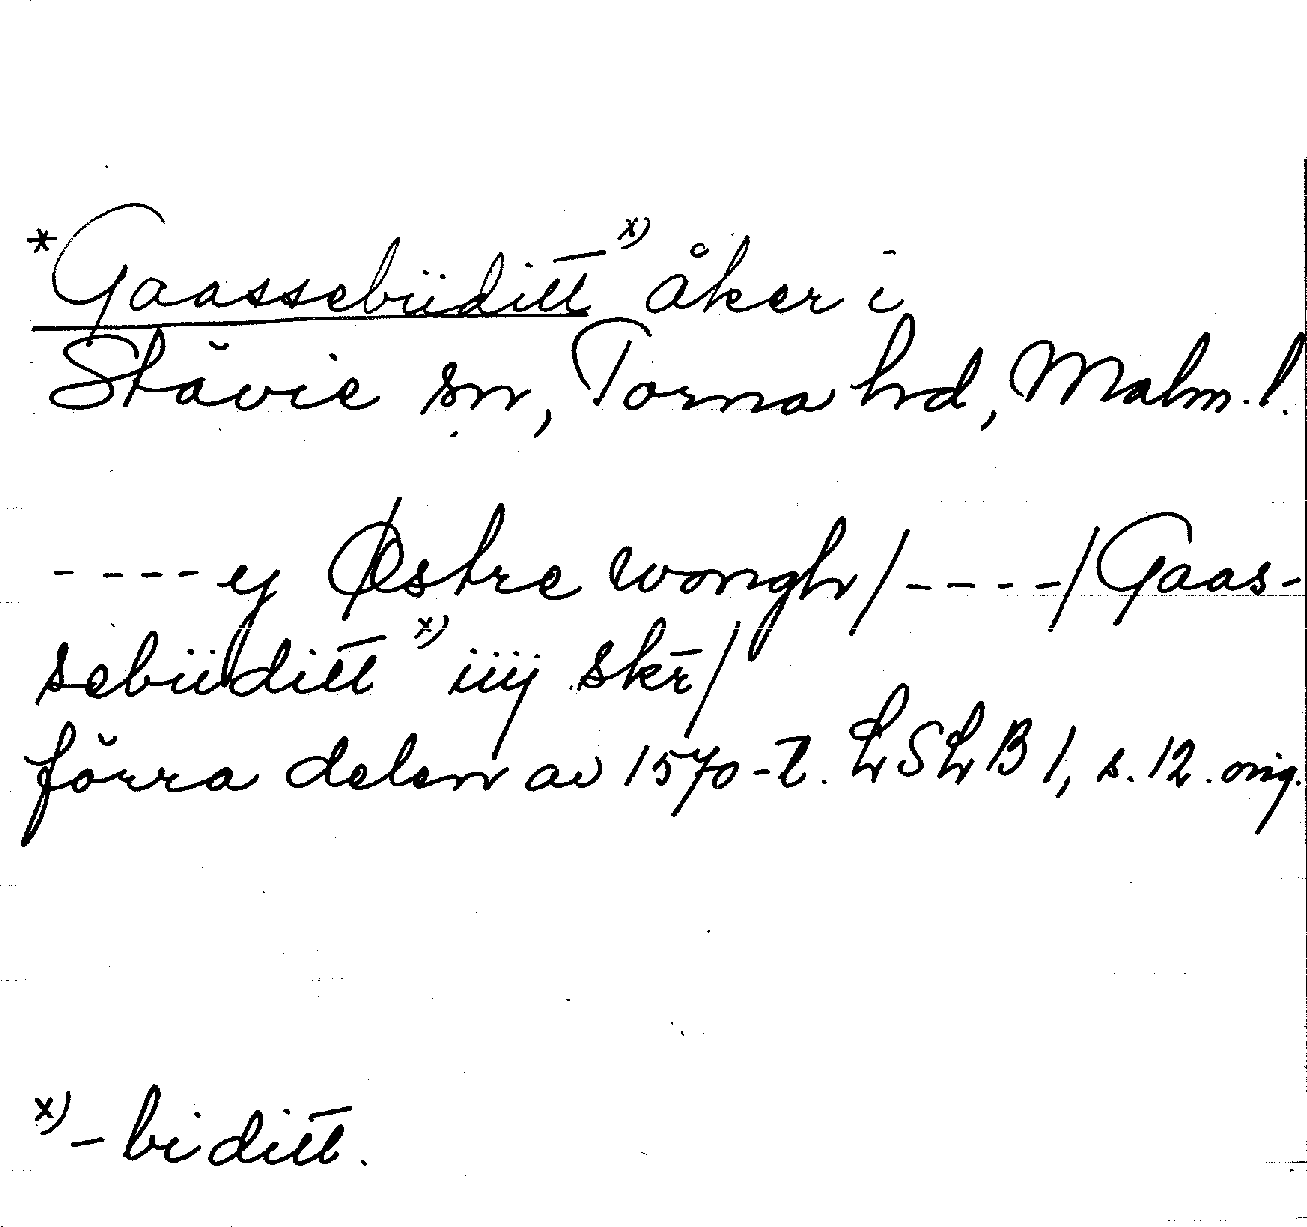 *Gaassebüditt x) åker i
Stävie sn, Torna hrd, Malm. l.
----ej Østre wongh/----/Gaas-
sebüditt x) iiij skr̄/
förra delen av 1570-t. LSLB 1, s. 12. orig.
x) -biditt.